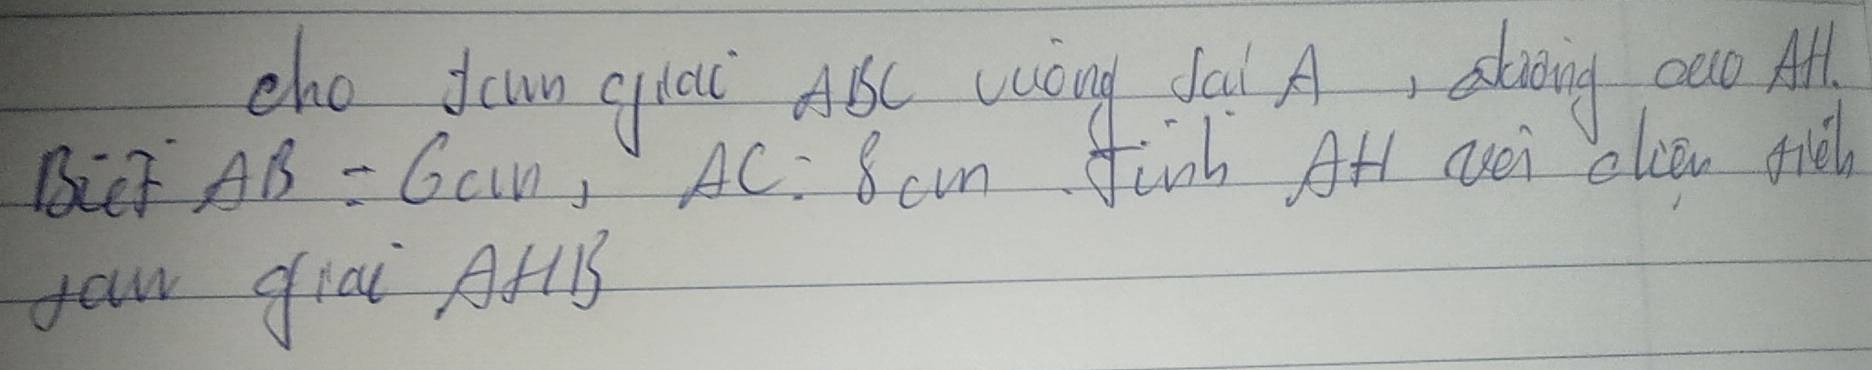 cho tam giác ABC vuông tại A, đường cao AH.
Biết AB = 6cm, AC = 8cm. Tính AH và diện tích
tam giác AHB